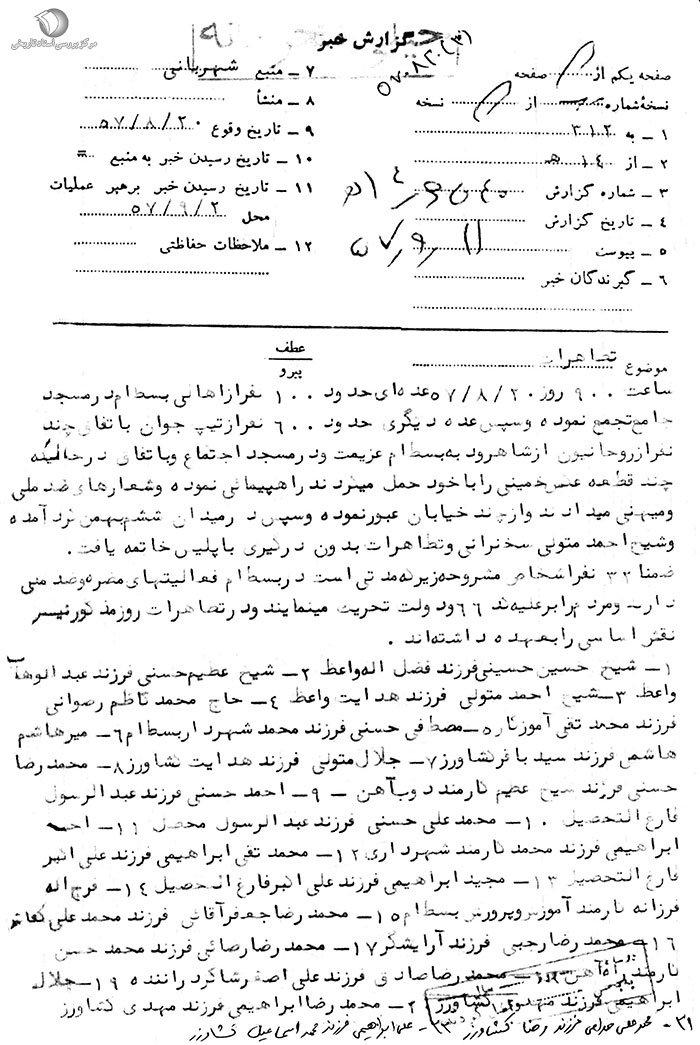 مرکز بررسی اسناد تاریخی
گزارش خبر
صفحه یکم از صفحه
نسخه شماره از نسخه
۱ ـ به ۳۱۲
۲ ـ از ۱۴ هـ
۳ ـ شماره گزارش
۴ ـ تاریخ گزارش
۵ ـ پیوست
۶ ـ گیرندگان خبر
۷ ـ منبع شهربانی
۸ ـ منشأ
۹ ـ تاریخ وقوع ۵۷/۸/۲۰
۱۰ ـ تاریخ رسیدن خبر به منبع =
۱۱ ـ تاریخ رسیدن خبر برهبر عملیات
محل ۵۷/۹/۲
۱۲ ـ ملاحظات حفاظتی
موضوع تظاهرات
عطف
پیرو
ساعت ۹۰۰ روز ۵۷/۸/۲۰ عده‌ای حدود ۱۰۰ نفر از اهالی بسطام در مسجد
جامع تجمع نموده و سپس عده دیگری حدود ۶۰۰ نفر از تیپ جوان با تفاق چند
نفر از روحانیون از شاهرود به بسطام عزیمت و در مسجد اجتماع و باتفاق در حالیکه
چند قطعه عکس خمینی را با خود حمل میکردند راهپیمائی نموده و شعارهای ضد ملی
و میهنی میدادند و از چند خیابان عبور نموده و سپس در میدان ششم بهمن گرد آمده
و شیخ احمد متولی سخنرانی و تظاهرات بدون درگیری با پلیس خاتمه یافت .
ضمنا ۲۲ نفر اشخاص مشروحه زیر که مدتی است در بسطام فعالیتهای مضره و ضد ملی
دارند و مردم را بر علیه ۶۶ و دولت تحریک مینمایند و در تظاهرات روز مذکور نیز
نقش اساسی را بعهده داشته‌اند .
۱ـ شیخ حسین حسینی فرزند فضل اله واعظ ۲ـ شیخ عظیم حسنی فرزند عبدالوهاب
واعظ ۳ـ شیخ احمد متولی فرزند هدایت واعظ ۴ـ حاج محمد کاظم رضوانی
فرزند محمد تقی آموزگار ۵ـ مصطفی حسنی فرزند محمد شهردار بسطام ۶ـ میرهاشم
هاشمی فرزند سید باقر کشاورز ۷ـ جلال متولی فرزند هدایت کشاورز ۸ـ محمد رضا
حسنی فرزند شیخ عظیم کارمند ذوب آهن ـ ۹ـ احمد حسنی فرزند عبدالرسول
فارغ التحصیل ۱۰ـ محمد علی حسنی فرزند عبدالرسول محصل ۱۱ـ احمد
ابراهیمی فرزند محمد کارمند شهرداری ۱۲ـ محمد تقی ابراهیمی فرزند علی اکبر
فارغ التحصیل ۱۳ـ مجید ابراهیمی فرزند علی اکبر فارغ التحصیل ۱۴ـ فرج اله
فرزانه کارمند آموزش و پرورش بسطام ۱۵ـ محمد رضا جعفر آقائی فرزند محمد علی کفاش
۱۶ـ محمد رضا رجبی فرزند آرایشگر ۱۷ـ محمد رضا رضائی فرزند محمد حسن
کارمند راه آهن ۱۸ـ محمد رضا صادقی فرزند علی اصغر شاگرد راننده ۱۹ـ جلال
ابراهیمی فرزند مهدی کشاورز ۲۰ـ محمد رضا ابراهیمی فرزند مهدی کشاورز
۲۱ـ محمد علی فرزند رضا کشاورز ۲۲ـ علی ابراهیمی فرزند محمد اسماعیل کشاورز